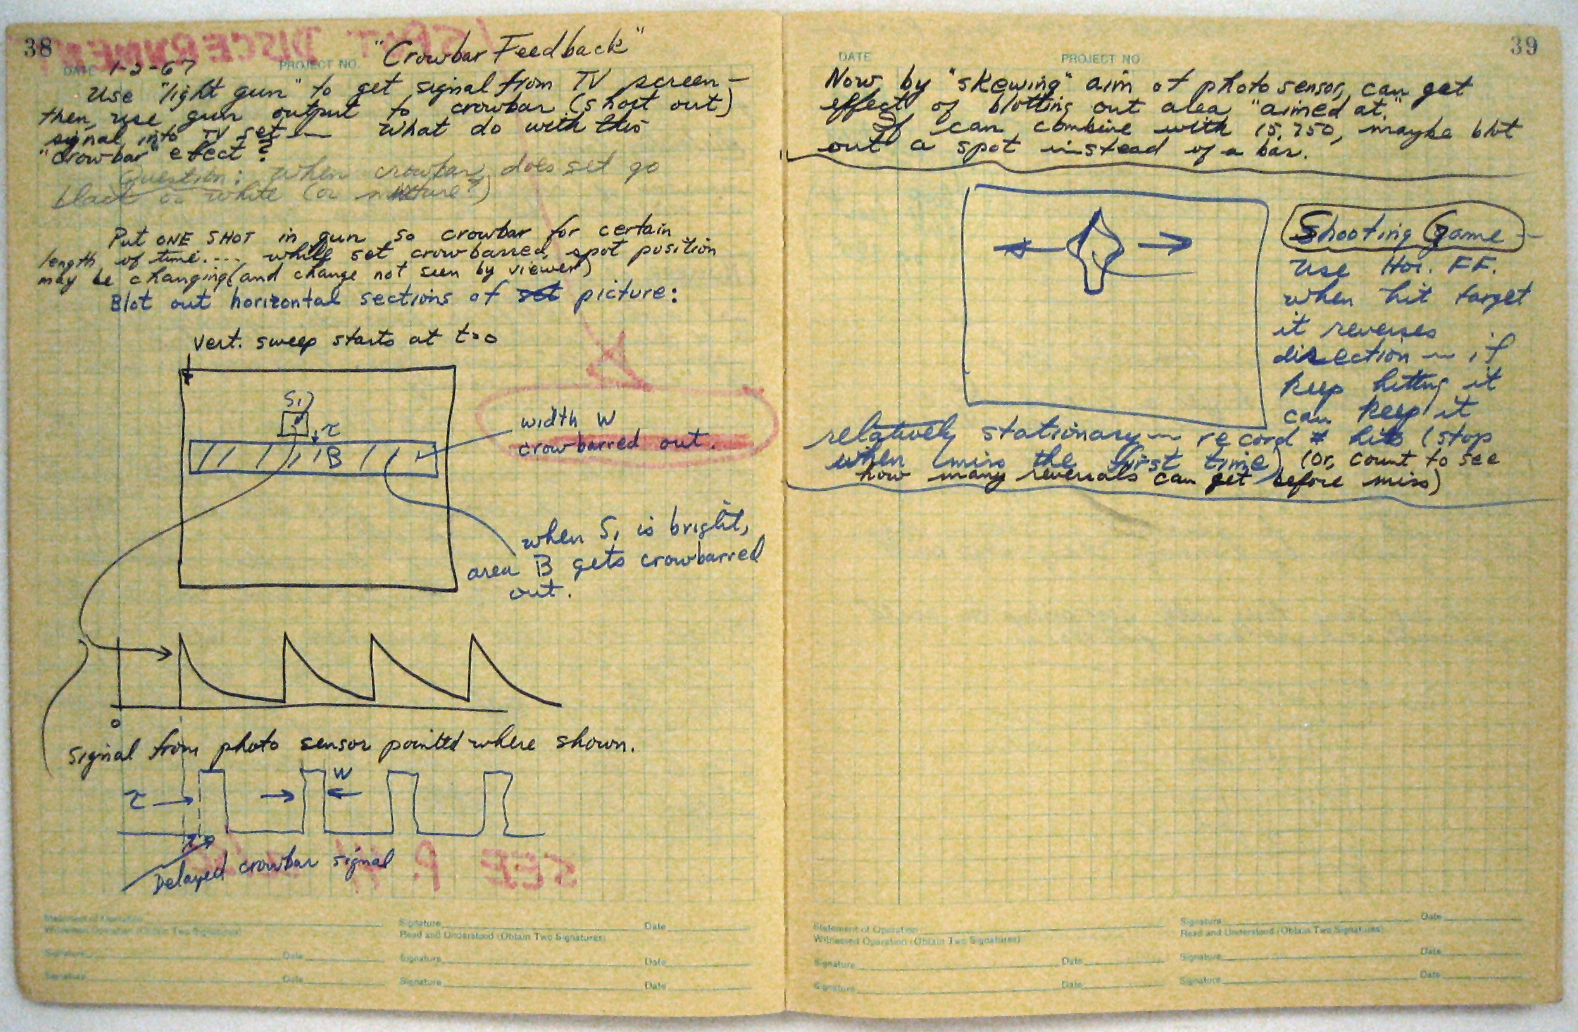 38
DATE 1-2-67
PROJECT NO.
"Crowbar Feedback"
Use "light gun" to get signal from TV screen —
then use gun output to crowbar (short out)
signal into TV set — What do with this
"crowbar" effect?
Question: when crowbar, does set go
black or white (or mixture?)
Put ONE SHOT in gun so crowbar for certain
length of time.... while set crowbarred, spot position
may be changing (and change not seen by viewer)
Blot out horizontal sections of set picture:
Vert. sweep starts at t=0
S1
τ
B
width W
crowbarred out.
when S1 is bright,
area B gets crowbarred
out.
0
Signal from photo sensor pointed where shown.
τ
W
Delayed crowbar signal
SEE P.
Statement of Operation
Witnessed Operation (Obtain Two Signatures)
Signature Date
Signature Date
Signature Date
Read and Understood (Obtain Two Signatures)
Signature Date
Signature Date
39
DATE
PROJECT NO
Now by "skewing" aim of photo sensor, can get
effect of blotting out area "aimed at."
If can combine with 15,750, maybe blot
out a spot instead of a bar.
Shooting Game —
Use Hor. FF.
when hit target
it reverses
direction — if
keep hitting it
can keep it
relatively stationary — record # hits (stop
when miss the first time) (or, count to see
how many reversals can get before miss)
Statement of Operation
Witnessed Operation (Obtain Two Signatures)
Signature Date
Signature Date
Signature Date
Read and Understood (Obtain Two Signatures)
Signature Date
Signature Date